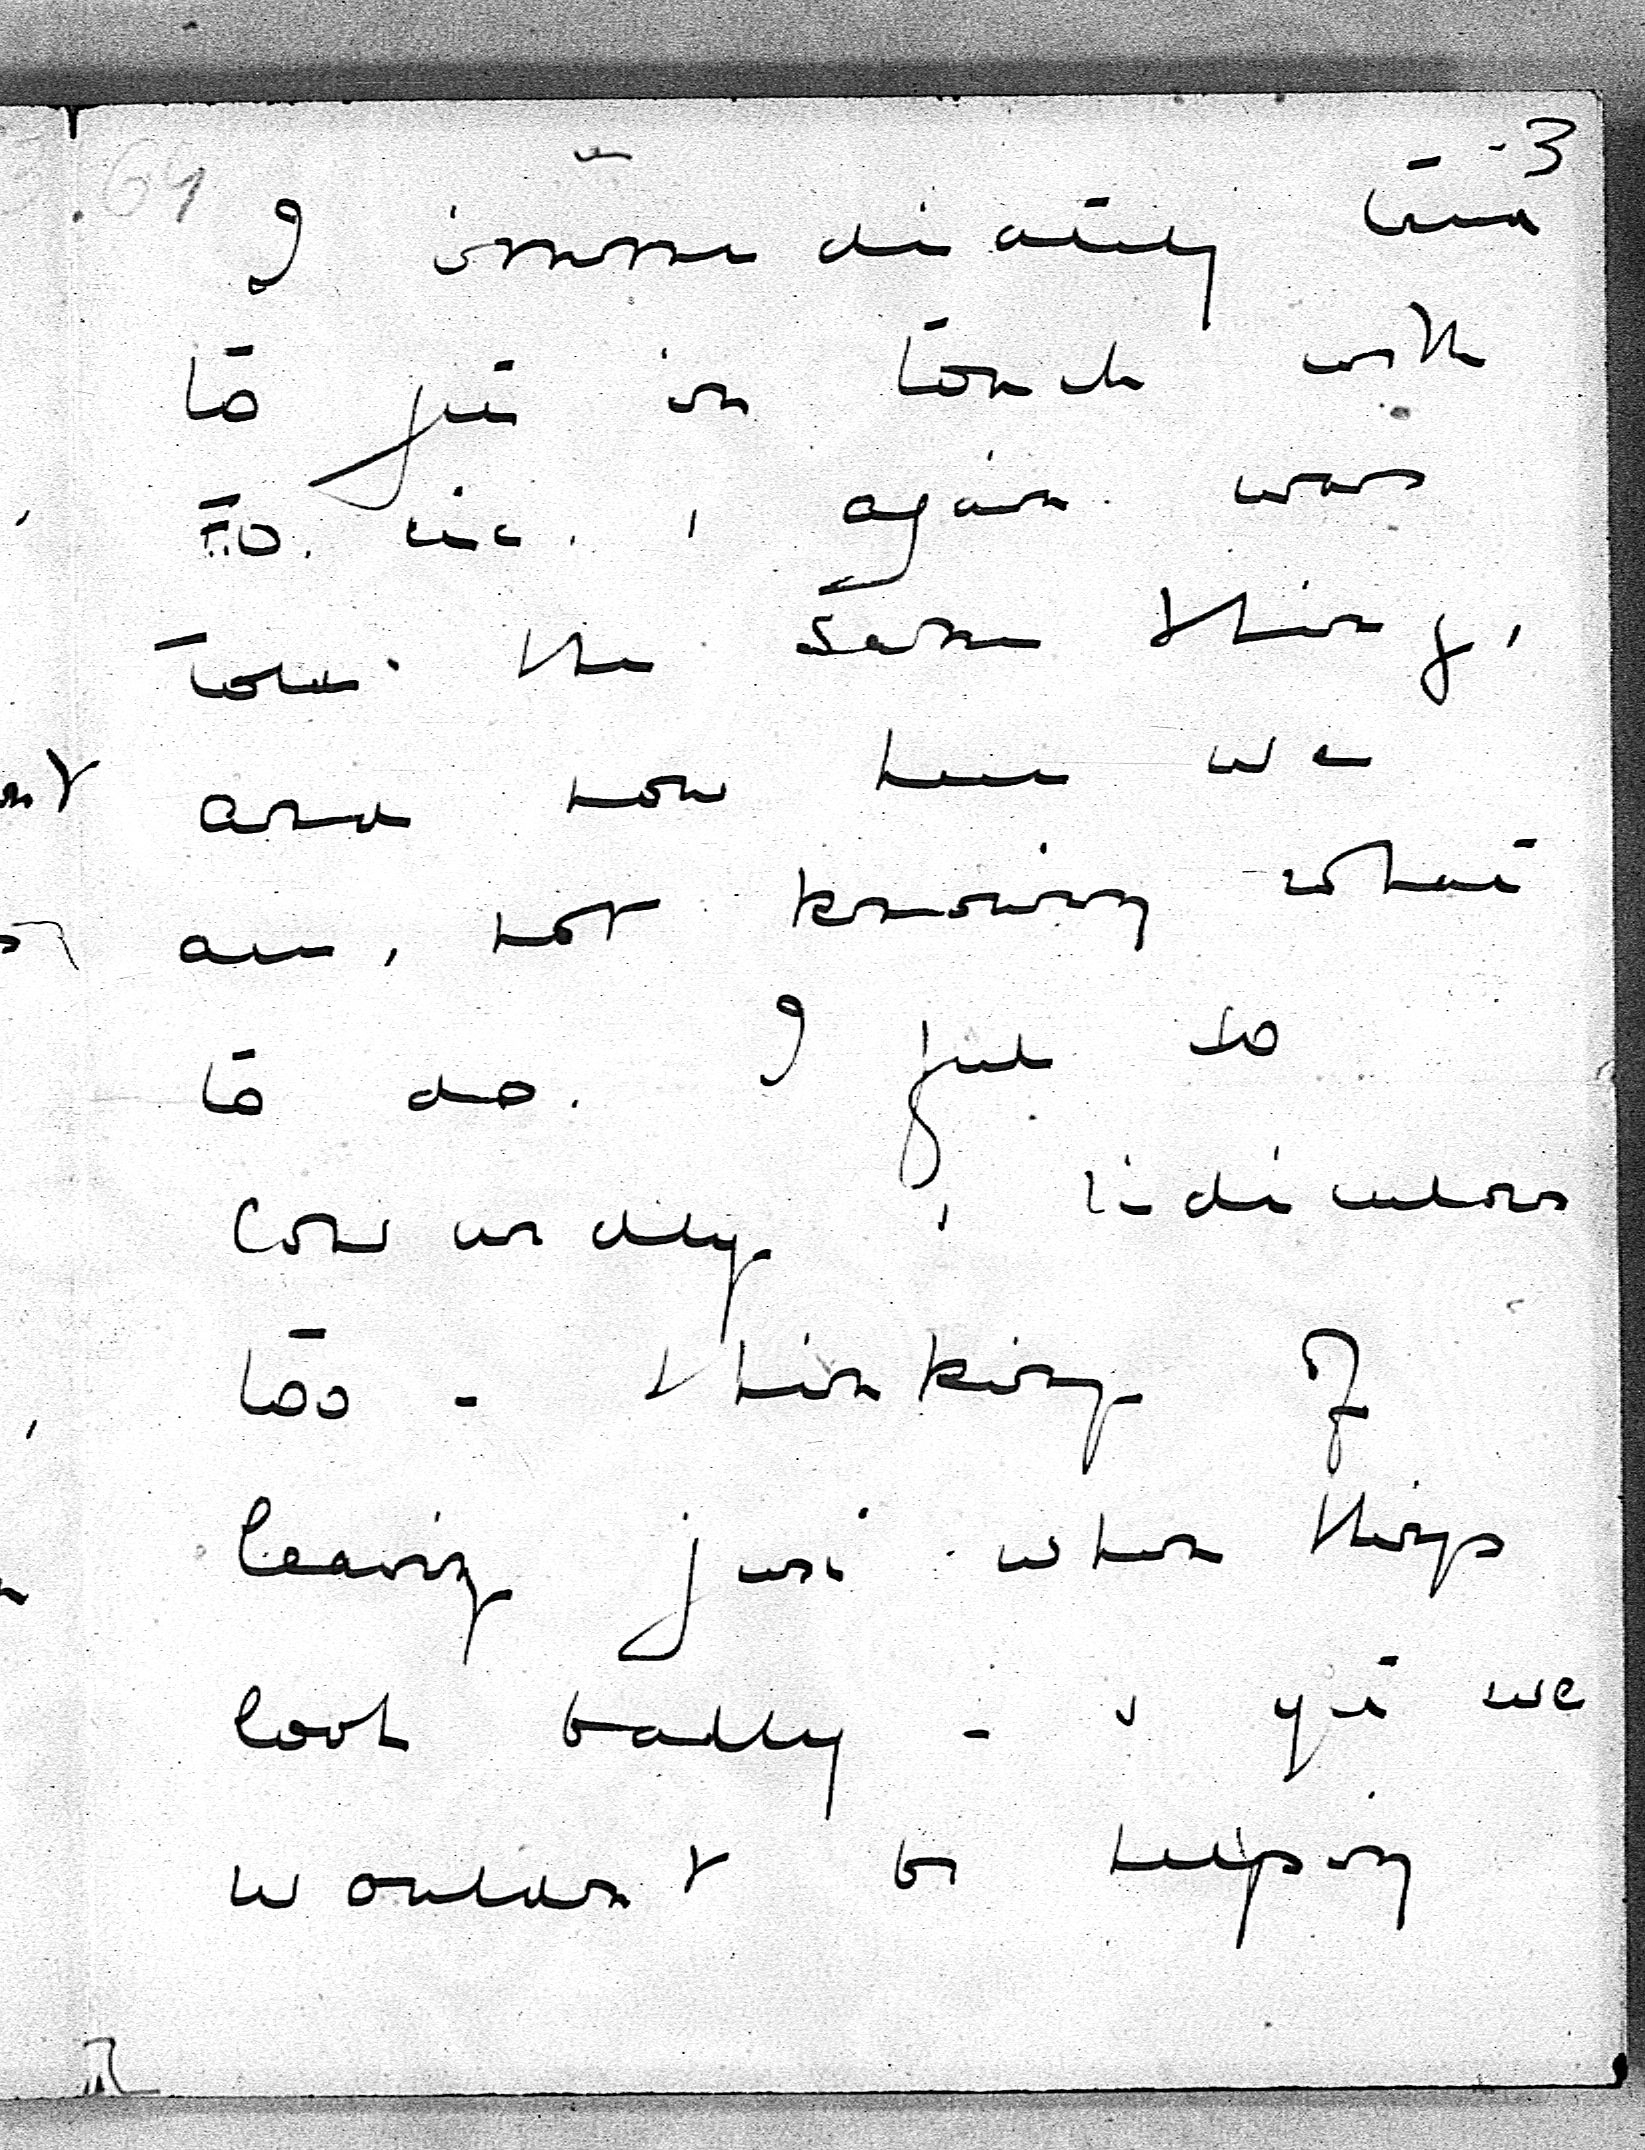 3
I immediately tried
to get in touch with
, again was
told the same thing,
and now here we
are, not knowing what
to do. I feel so
cowardly, ridiculous
too - thinking of
leaving just when things
look badly - & yet we
wouldn't be helping